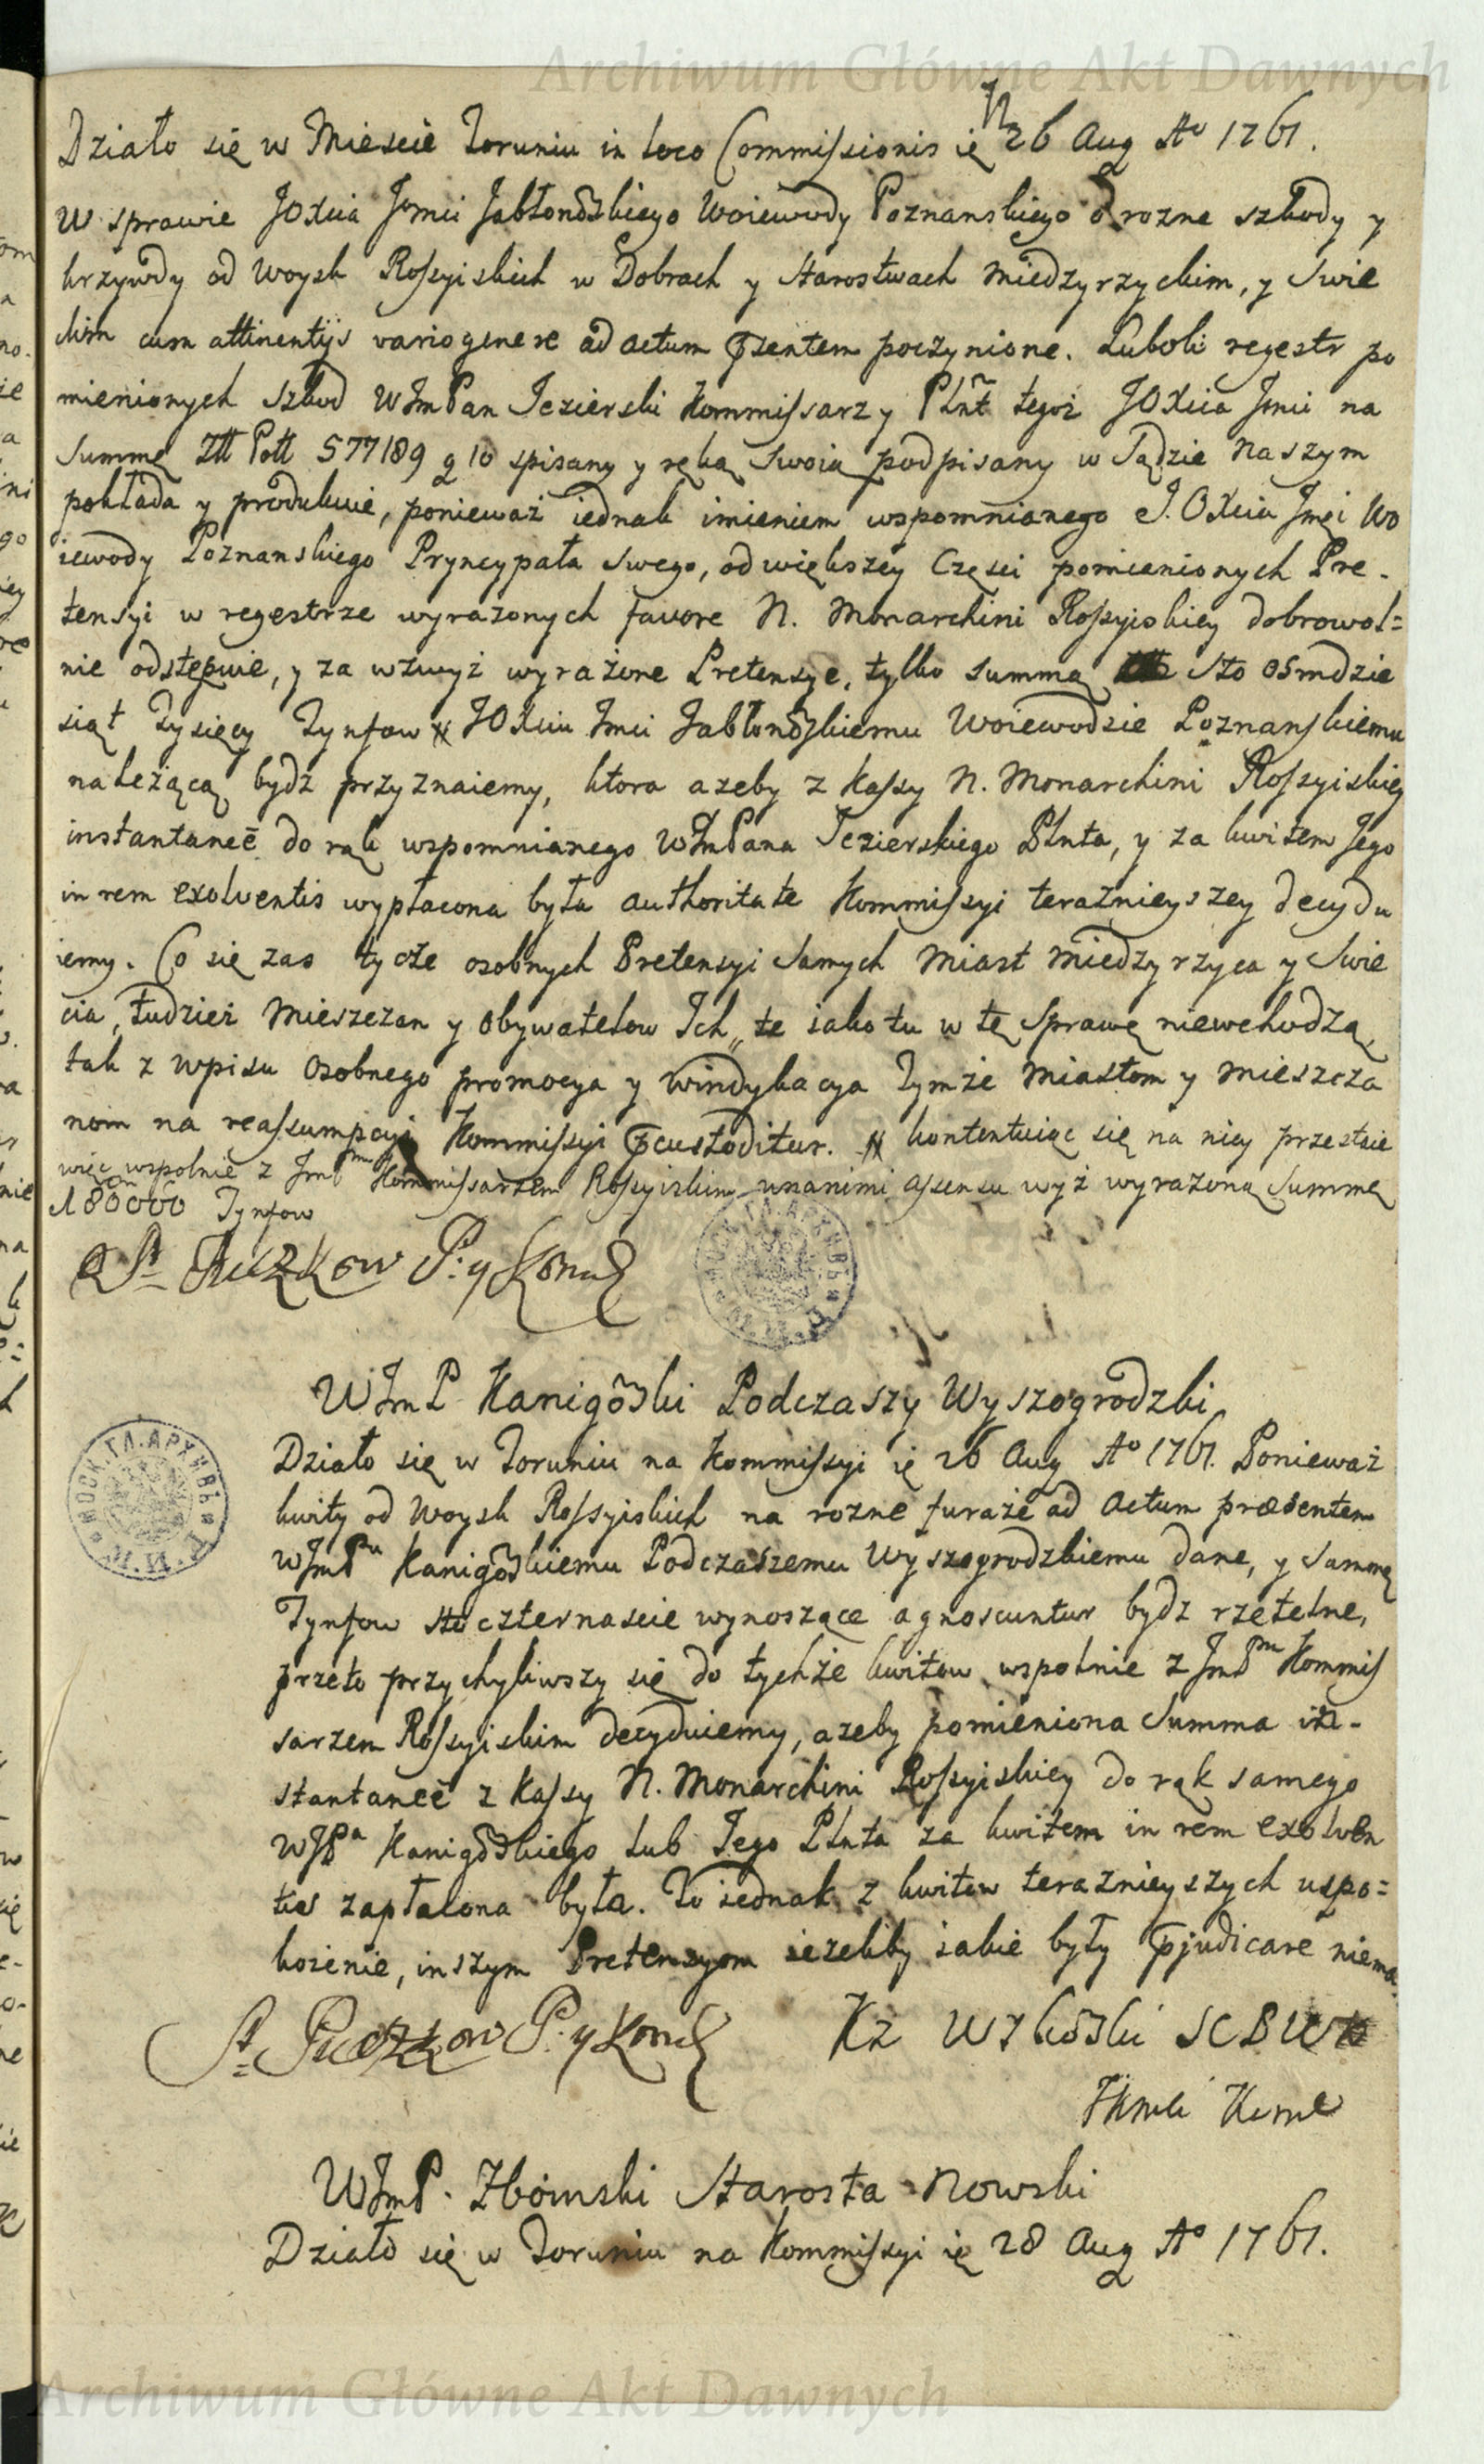 Archiwum Główne Akt Dawnych
Działo się w Mieście Toruniu in loco Commissionis ię 26 Aug Ao 1761.
W sprawie JOXcia Jmci Jabłonoskiego Woiewody Poznanskiego o rozne szkody y
krzywdy od Woysk Rossyiskich w Dobrach y Starostwach Miedzyrzyckim, y Swie
ckim cum attinentijs vario genere ad actum pzentem poczynione. Luboli regestr po
mienionych Szkod WJmPan Jezierski Kommissarz y Plnt tegoż JOXcia Jmci na
Summę Złł Poll 577189 g 10 spisany y ręką Swoią podpisany w Sądzie Naszym
pokłada y produkuie, ponieważ iednak imieniem wspomnianego J.OXcia Jmci Wo
iewody Poznanskiego Pryncypała Swego, od większey Części pomienionych Pre-
tensyi w regestrze wyrażonych favore N. Monarchini Rossyiskiey dobrowol=
nie odstępuie, y za wzwyż wyrażone Pretensye, tylko Summą Sto Osmdzie
siąt Tysięcy Tynfow # JOXciu Jmci Jabłonoskiemu Woiewodzie Poznanskiemu
należącą bydz przyznaiemy, ktora azeby z Kassy N. Monarchini Rossyiskiey
instantaneè do rąk wspomnianego WJmPana Jezierskiego Plnta, y za kwitem Jego
in rem exolventis wypłacona była authoritate Kommissyi teraznieyszey decydu
iemy. Co się zas tycze osobnych Pretensyi Samych Miast Miedzyrzyca y Swie
cia, tudzież Mieszczan y Obywatelow Ich, te iako tu w tę Sprawę niewchodzą,
tak z wpisu Osobnego promocya y windykacya Tymże Miastom y Mieszcza
nom na reassumpcyi Kommissyi pcustoditur. # kontentuiąc się na niey przestaie
więc wspolnie z JmPm Kommissarzem Rossyiskim unanimi assensu wyż wyrażoną Summę
180000 Tynfow
P: y Kom
WJmP Kanigoski Podczaszy Wyszogrodzki
Działo się w Toruniu na Kommissyi ię 26 Aug Ao 1761. Ponieważ
kwity od Woysk Rossyiskich na rozne furaże ad Actum præsentem
WJmPu Kanigoskiemu Podczaszemu Wyszogrodzkiemu dane, y Summę
Tynfow sto czternascie wynoszące agnoscuntur bydz rzetelne,
przeto przychyliwszy się do tychże kwitow wspolnie z JmPm Kommis
sarzem Rossyiskim decyduiemy, azeby pomieniona Summa in-
stantaneè z Kassy N. Monarchini Rossyiskiey do rąk samego
WJPa Kanigoskiego lub Jego Plnta za kwitem in rem exolven
tis zapłacona była. To iednak z kwitow teraznieyszych uspo=
koienie, inszym Pretensyom iezeliby iakie były pjudicare niema.
P: y Kom
WJmP. Zboinski Starosta Nowski
Działo się w Toruniu na Kommissyi ię 28 Aug Ao 1761.
МОСК.ГЛ.АРХИВЪ
М.И.Д.
Archiwum Główne Akt Dawnych